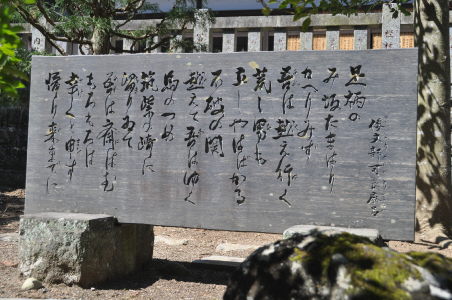 足柄の
み坂たまはり
かへりみず
吾は越え行く
荒し男も
立しやはばかる
不破の関
越えて吾はゆく
馬のつめ
筑紫の崎に
留り居て
吾は斎はむ
もろもろは
幸くと申す
帰り来までに